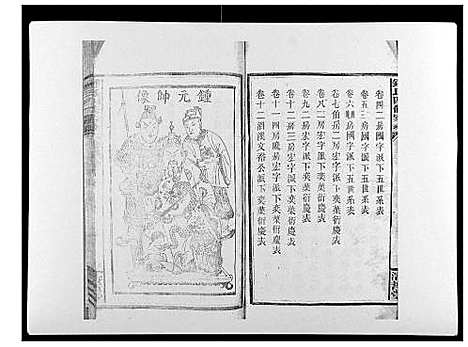 卷四二房國字派下五世系表
卷五三房國字派下五世系表
卷六四房國字派下五世系表
卷七伯岳二房宏字派下奕葉衍慶表
卷八二房宏字派下奕葉衍慶表
卷九二房宏字派下奕葉衍慶表
卷十二房三房宏字派下奕葉衍慶表
卷十一四房慶房宏字派下奕葉衍慶表
卷十二瀏溪文裕公派下奕葉衍慶表
鍾元帥像